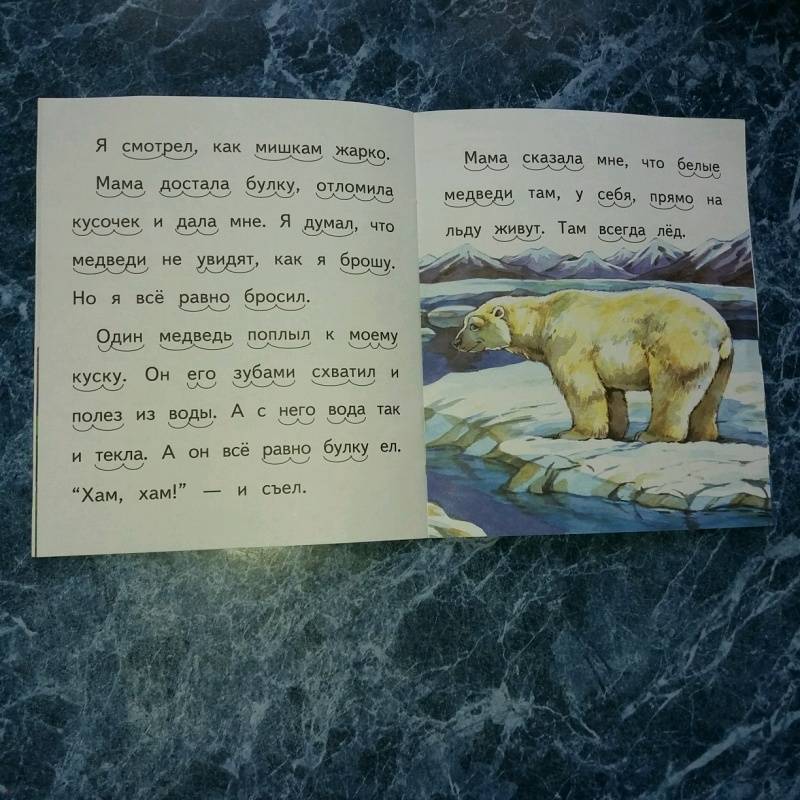 Я смотрел, как мишкам жарко.
Мама достала булку, отломила
кусочек и дала мне. Я думал, что
медведи не увидят, как я брошу.
Но я всё равно бросил.
Один медведь поплыл к моему
куску. Он его зубами схватил и
полез из воды. А с него вода так
и текла. А он всё равно булку ел.
“Хам, хам!” — и съел.
Мама сказала мне, что белые
медведи там, у себя, прямо на
льду живут. Там всегда лёд.